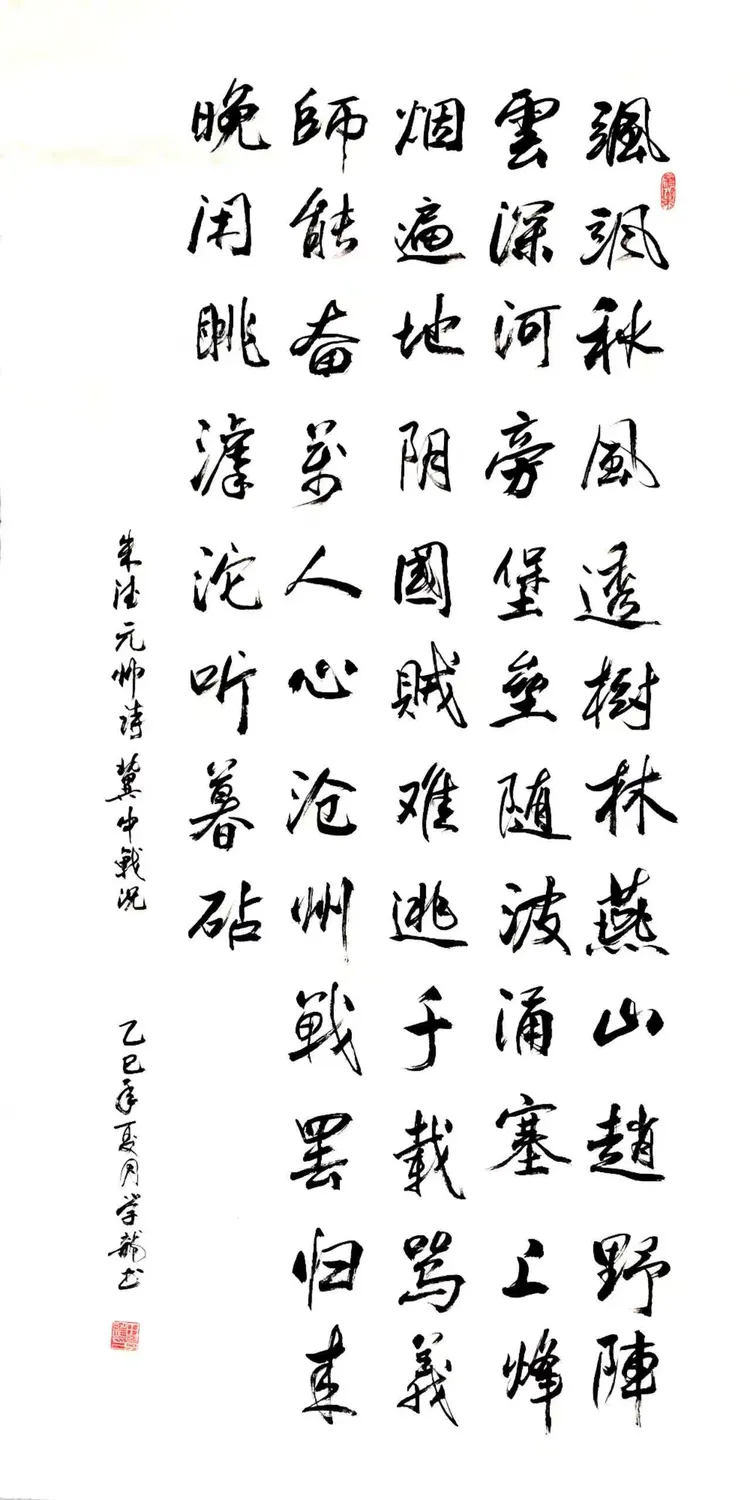 颯飒秋風透樹林燕山趙野陣
雲深河旁堡垒随波涌塞上烽
烟遍地阴國賊难逃千載骂義
師能奋萬人心沧州戰罢归来
晚闲眺滹沱听暮砧
朱德元帅诗冀中戰况
乙巳年夏月学龍书